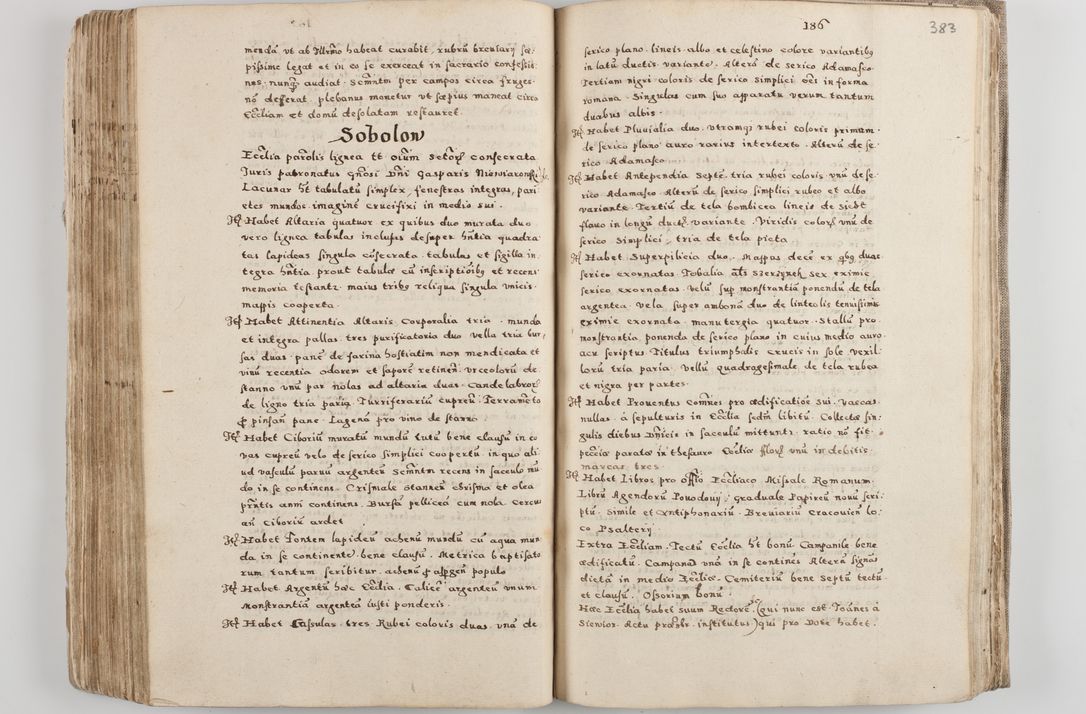 mendã vt ab Illrmo habeat curabit, rubrũ breuiarij sæ-
pissime legat et in eo se exerceat in sacrario confessio-
nes nunq̃ audiat. Semñtm per campos circa fruges
nõ deferat. plebanus monetur vt sæpius maneat circa
Eccliam et domũ desolatam restauret.
Sobolow
Ecclia parolis lignea tt oium Sctorũ consecrata
Juris patronatus Gnosi Dni Gasparis
Lacunar ht tabulatũ simplex, fenestras integras, pari
etes mundos. imaginẽ crucifixi in medio sui.
Itẽ Habet Altaria quatuor ex quibus duo murata duo
vero lignea tabulas inclusas desuper hñtia quadra
tas lapideas singula cõsecrata tabulas et sigilla in
tegra hñtia prout tabulæ cũ inscriptiõibus et recens
memoria testantr. maius tribus reliqua singula vnicis
mappis cooperta.
Itẽ Habet Attinentia Altaris. Corporalia tria. munda
et integra pallas tres purificatoria duo vella tria bur
sas duas panẽ de farina hostiatim non mendicata et
vinũ recentia odorem et saporẽ retinẽn. vrceolorũ de
stanno vnũ par nolas ad altaria duas. Candelabrorũ
de ligno tria paria. Turriferariũ cupreũ. Ferramẽto
p pinsañ pane. Lagenã pro vino de stanno
Itẽ Habet Ciboriũ muratũ mundũ tutũ bene clausũ in eo
vas cupreũ velo de serico simplici coopertũ in quo ali-
ud vasculũ paruũ argenteũ Semñtm recens in saculo mũ
do, in se continens. Crismale stanneũ chrisma et olea
pñtis anni continens. Bursã pelliceã cum nola. Cereus
añ Ciboriũ ardet
Itẽ Habet Fontem lapideũ achenũ mundũ cũ aqua mun
da in se continente bene clausũ. Metrica baptisato
rum tantum scribitur. achenũ p aspgeñ populo
Itẽ Habet Argentũ hæc Ecclia. Calicẽ argenteũ vnum
Monstrantiã argenteã iusti ponderis.
Itẽ Habet Casulas tres Rubei coloris duas vnã de
186
383
serico plano. lineis albo et celestino colore variantibus
in latũ ductis variante. Alterã de serico Adamasco.
Tertiam nigri coloris de serico simplici oẽs in forma
romana. Singulas cum suo apparatu verum tantum
duabus albis.
Itẽ Habet Pluuialia duo vtramque rubei coloris primum
de serico plano auro rarius intertexto. Alterũ de se-
rico Adamasco
Itẽ Habet Antependia Septẽ tria rubei coloris vnũ de se-
rico Adamasco Alterũ de serico simplici rubeo et albo
variante. Tertiũ de tela bombicea lineis de
flauo in longũ ductis variante. Viridis coloris vnũ de
serico simplici, tria de tela picta
Itẽ Habet Superpilicia duo. Mappas decẽ ex qbus duas
serico exornatas Tobalia als Szerzynek sex eximie
serico exornatas. velũ sup monstrantiã ponendũ de tela
argentea. vela super ambonã duo de linteolis tenuissimis
eximie exornata. manutergia quatuor. Stallũ pro
monstrantia ponenda de serico plano in cuius medio auro.
acu scriptus Titulus triumphalis crucis in sole vexil-
lorũ tria paria. Vellũ quadragesimale de tela rubea
et nigra per partes.
Itẽ Habet Prouentus Comñes pro ædificatioẽ sui. vaccas
nullas à sepulturis in Ecclia scdm libitũ. Collectæ sin-
gulis diebus Dñicis in saculũ mittuntr ratio nõ fit.
pecciã paratã in thesauro Ecclia flor. vnũ in debitis
marcas tres
Itẽ Habet Libros pro offio Eccliaco Missale Romanum
Librũ Agendorũ Pouodouij. Graduale Papireũ nouũ scri-
ptũ. Simile et Antiphonariũ. Breuiariũ Cracouieñ lo-
co Psalterij.
Extra Eccliam. Tectũ Ecclia ht bonũ. Campanile bene
ædificatũ. Campanã vnã in se continẽs Alterã signãs
dictã in medio Eccliæ. Cemiteriũ bene septũ tectũ
et clausũ. Ossorium bonũ.
Hæc Ecclia habet suum Rectorẽ (qui nunc est Joãnes à
Sienior. Actu prasbr. institutus) qui pro Dote habet.